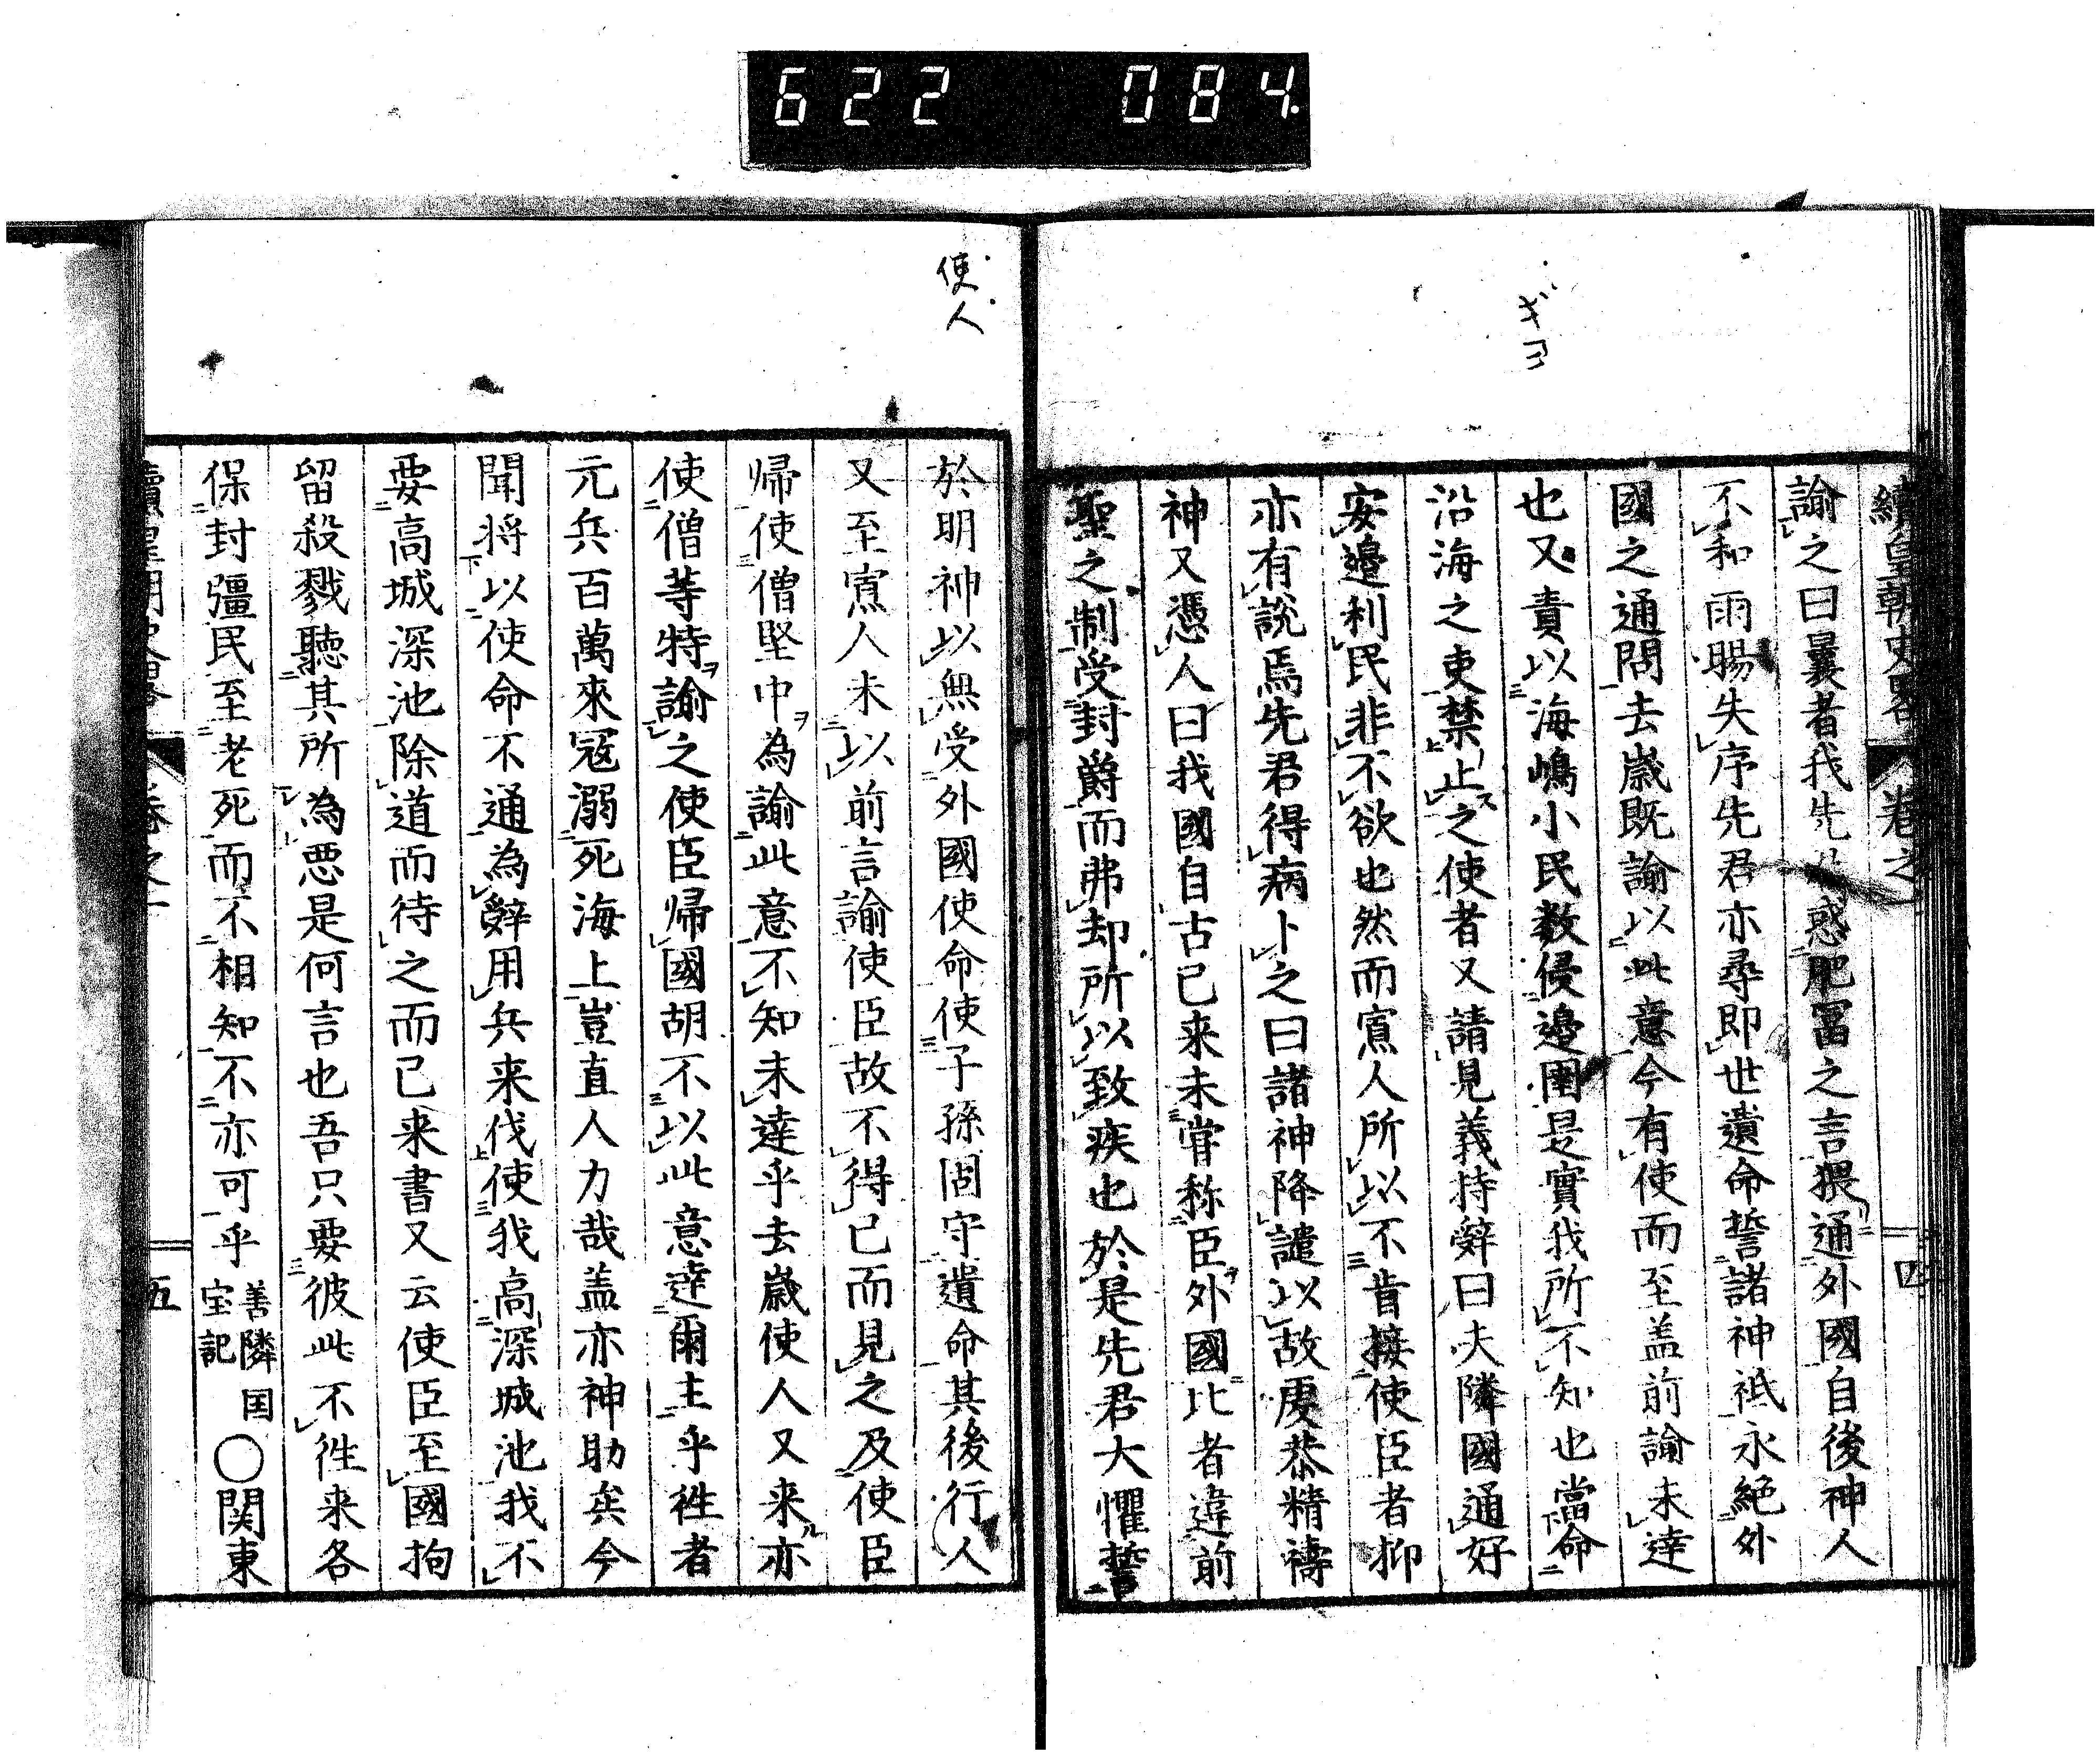 622 084
ギョ
續皇朝史畧 卷之一 四
諭之曰曩者我先君惑肥冨之言猥通外國自後神人
不和雨暘失序先君亦尋即世遺命誓諸神祇永絶外
國之通問去歳既諭以此意今有使而至盖前諭未達
也又責以海嶋小民数侵邊圉是實我所不知也當命
沿海之吏禁止之使者又請見義持辭曰夫隣國通好
安邊利民非不欲也然而寡人所以不肯接使臣者抑
亦有説焉先君得病卜之曰諸神降譴以故虔恭精禱
神又憑人曰我國自古已来未嘗称臣外國比者違前
聖之制受封爵而弗却所以致疾也於是先君大懼誓
使人
於明神以無受外國使命使子孫固守遺命其後行人
又至寡人未以前言諭使臣故不得已而見之及使臣
帰使僧堅中為諭此意不知未達乎去歳使人又来亦
使僧等特諭之使臣帰國胡不以此意達爾主乎徃者
元兵百萬來冦溺死海上豈直人力哉盖亦神助矣今
聞将以使命不通為辭用兵来伐使我高深城池我不
要高城深池除道而待之而已来書又云使臣至國拘
留殺戮聴其所為悪是何言也吾只要彼此不徃来各
保封疆民至老死而不相知不亦可乎 善隣国宝記 〇関東
續皇朝史畧 卷之一 五